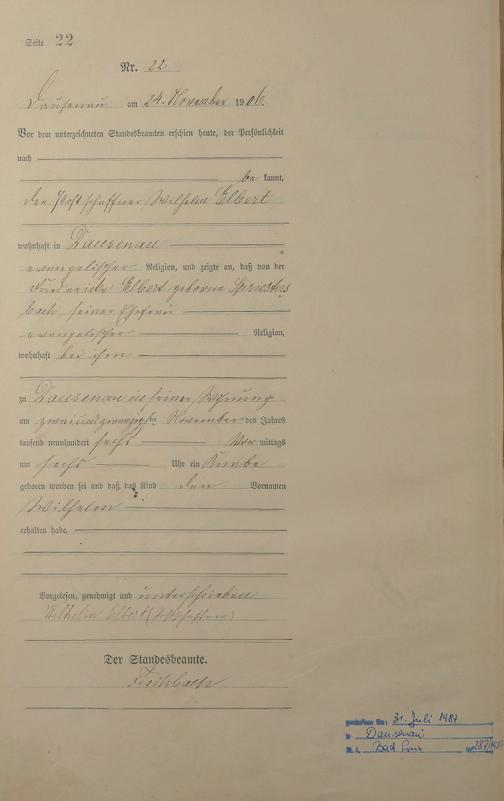 Seite 22
Nr. 22
Dausenau am 24. November 1906.
Vor dem unterzeichneten Standesbeamten erschien heute, der Persönlichkeit
nach
be kannt,
der Postschaffner Wilhelm Elbert
wohnhaft in Dausenau
evangelischer Religion, und zeigte an, daß von der
Elbert geborene Spriesters
bach, seiner Ehefrau
evangelischer Religion,
wohnhaft bei ihm
zu Dausenau in seiner Wohnung
am zweiundzwanzigsten November des Jahres
tausend neunhundert sechs Vor mittags
um sechs Uhr ein Knabe
geboren worden sei und daß das Kind den Vornamen
Wilhelm
erhalten habe.
Vorgelesen, genehmigt und unterschrieben
Wilhelm Elbert (Postschaffner)
Der Standesbeamte.
Fischbach
gestorben am: 31. Juli 1987
in Dausenau
Bad Ems 287/1987